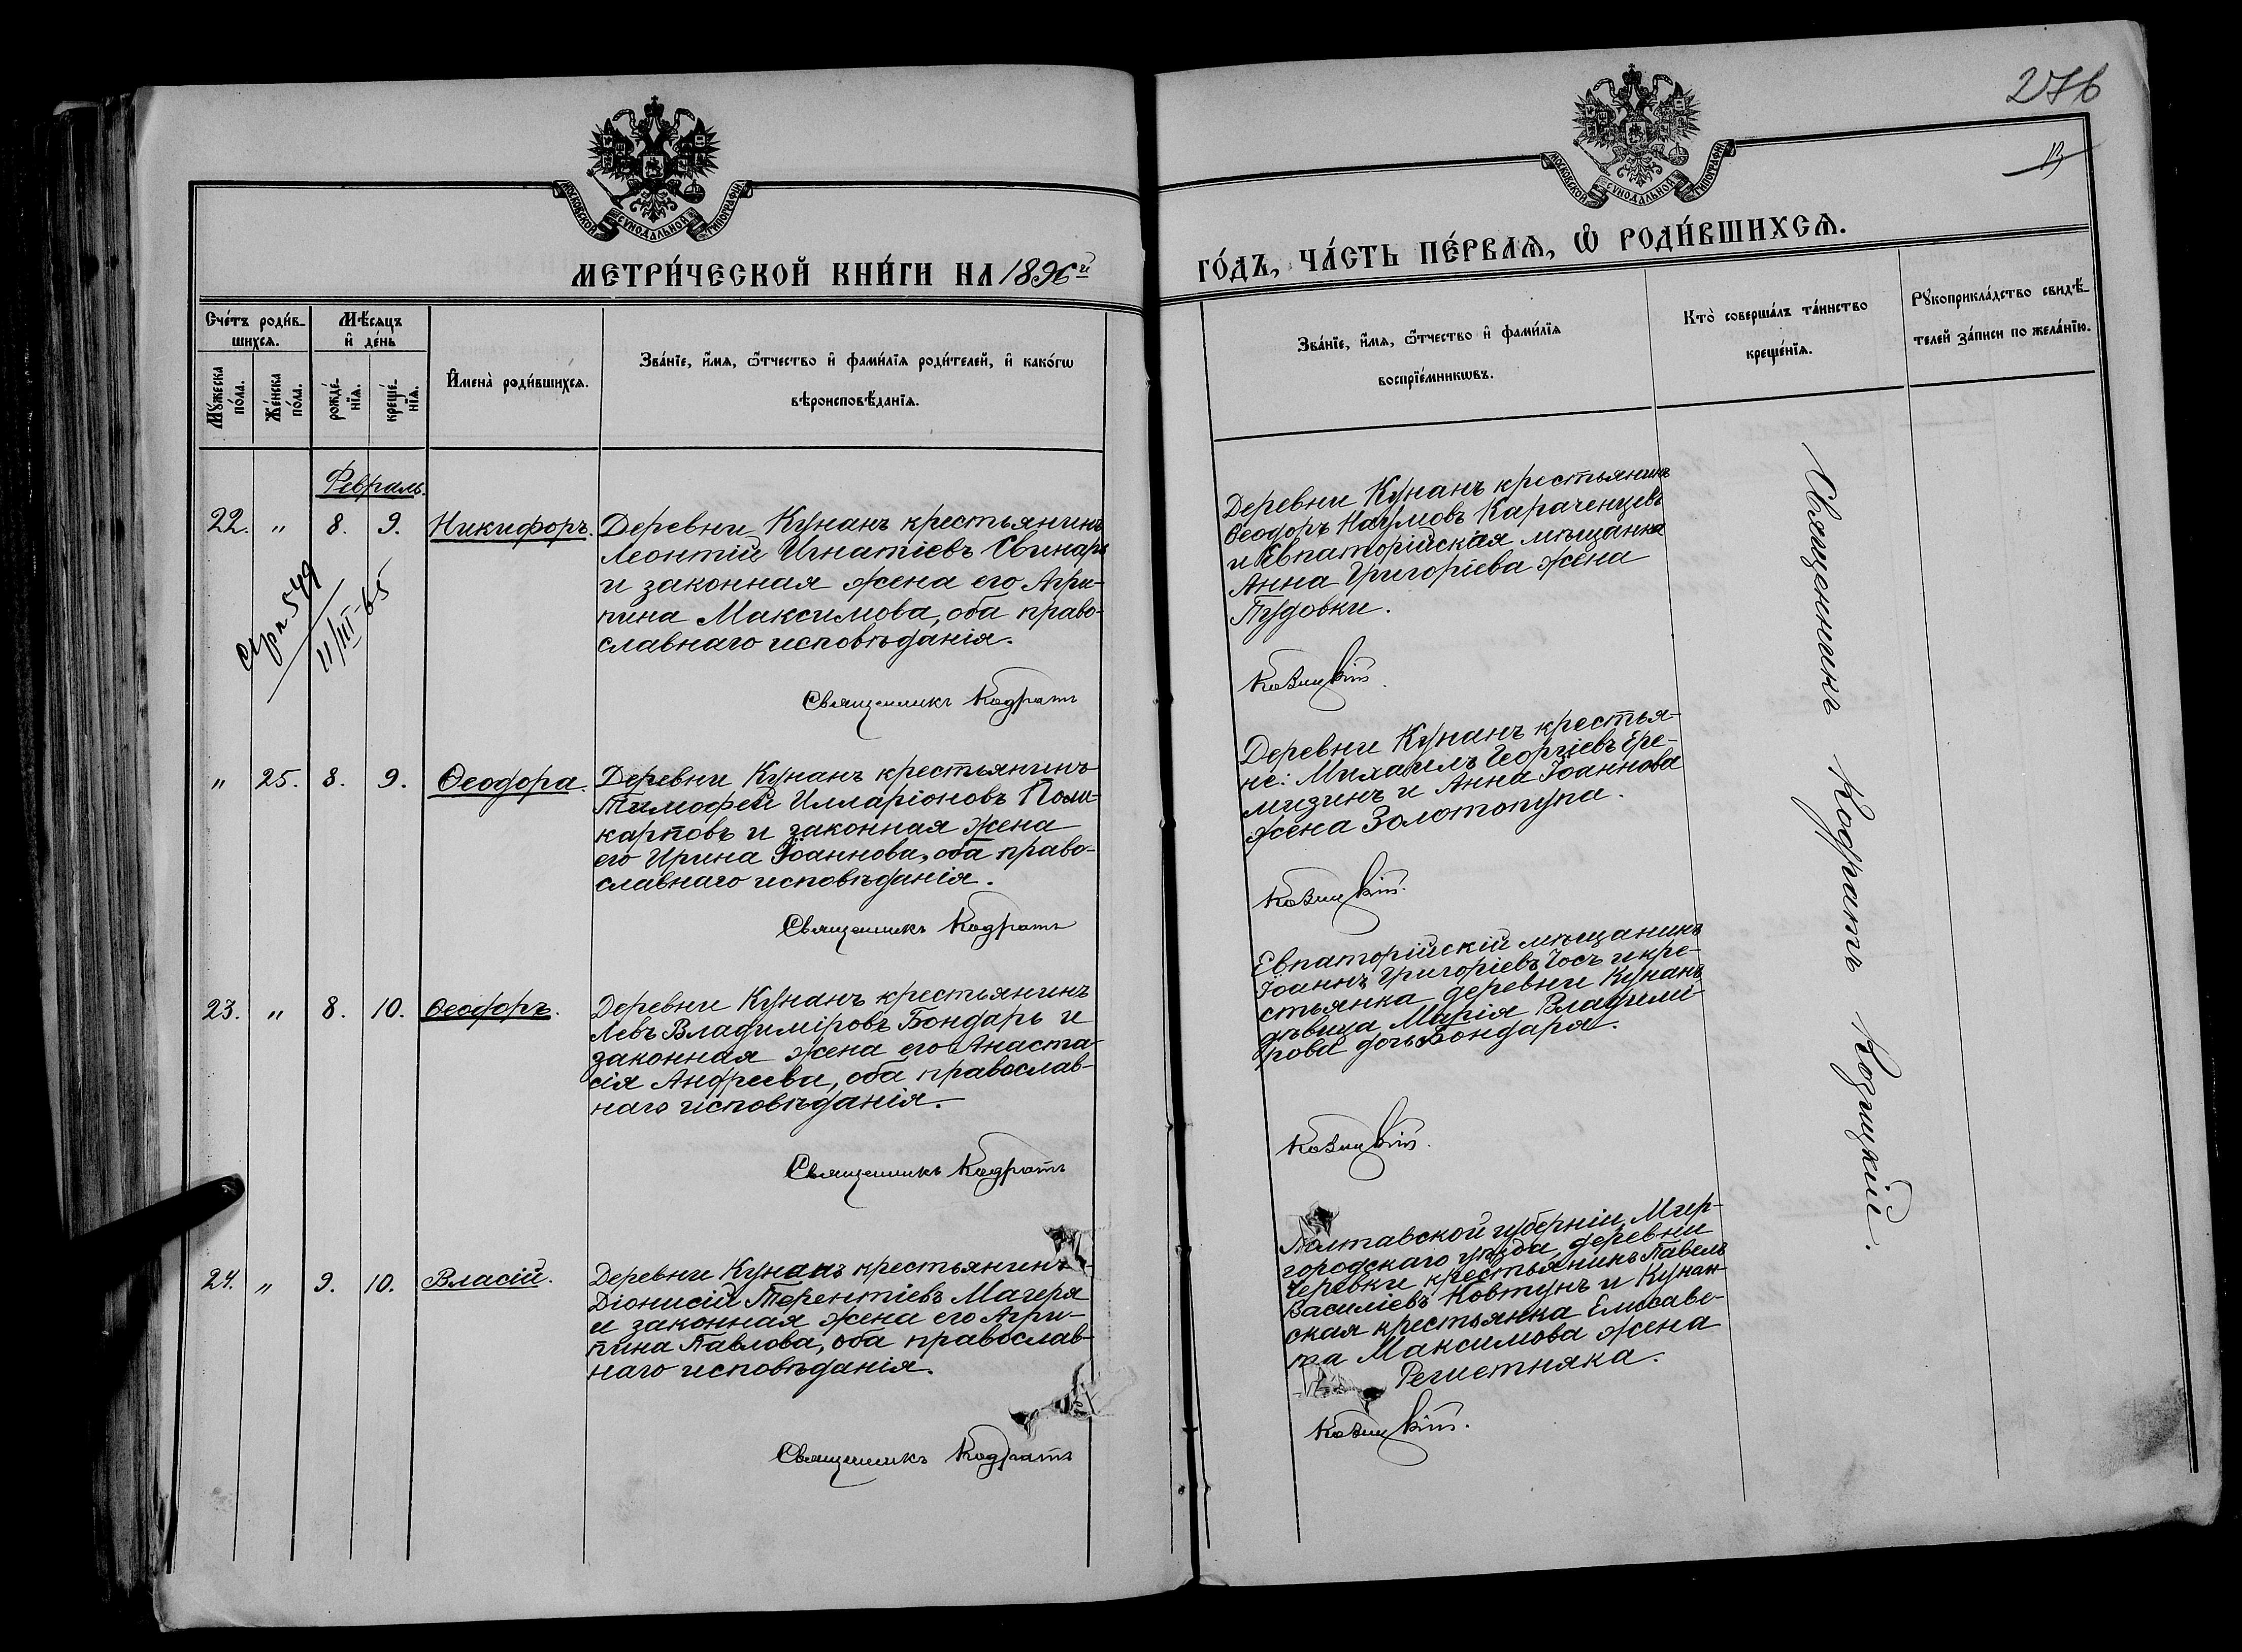 276
13
МОСКОВСКОЙ СУНОДАЛЬНОЙ ТИПОГРАФІИ
МОСКОВСКОЙ СУНОДАЛЬНОЙ ТИПОГРАФІИ
МЕТРИ́ЧЕСКОЙ КНИ́ГИ НА 1896й
ГО́ДЪ, ЧА́СТЬ ПЕ́РВАѦ, Ѡ҆ РОДИ́ВШИХСѦ.
Сче́тъ роди́в-
шихсѧ.
Мꙋ́жеска
по́ла.
Же́нска
по́ла.
Мѣ́сѧцъ
и҆ де́нь
рожде́-
нїѧ.
креще́-
нїѧ.
И҆мена̀ роди́вшихсѧ.
Зва́нїе, и҆́мѧ, ѻ҆́тчество и҆ фами́лїѧ роди́телей, и҆ како́гѡ
вѣроисповѣ́данїѧ.
Зва́нїе, и҆́мѧ, ѻ҆́тчество и҆ фами́лїѧ
воспрїе́мникѡвъ.
Кто̀ соверша́лъ та́инство
креще́нїѧ.
Рꙋкоприкла́дство свидѣ́-
телей за́писи по жела́нїю.
Февраль.
22. " 8. 9. Никифоръ.
Деревни Кунанъ крестьянинъ
Леонтій Игнатіевъ Свинарь
и законная жена его Агри-
пина Максимова, оба право-
славнаго исповѣданія.
Священникъ Кодратъ
Деревни Кунанъ крестьянинъ
Ѳеодоръ Наумовъ Караченцевъ
и Евпаторійская мѣщанка
Анна Григоріева жена
Пудовки.
Козицкій.
549
11/III-65
" 25. 8. 9. Ѳеодора.
Деревни Кунанъ крестьянинъ
Тимофей Илларіоновъ Поли-
карповъ и законная жена
его Ирина Іоаннова, оба право-
славнаго исповѣданія.
Священникъ Кодратъ
Деревни Кунанъ крестья-
не: Михаилъ Георгіевъ Ере-
мизинъ и Анна Іоаннова
жена Золотопупа.
Козицкій.
23. " 8. 10. Ѳеодоръ.
Деревни Кунанъ крестьянинъ
Левъ Владиміровъ Бондарь и
законная жена его Анаста-
сія Андреева, оба православ-
наго исповѣданія.
Священникъ Кодратъ
Евпаторійскій мѣщанинъ
Іоаннъ Григоріевъ Чосъ и кре-
стьянка деревни Кунанъ
дѣвица Марія Владимі-
рова дочь Бондаря.
Козицкій.
24. " 9. 10. Власій.
Деревни Кунанъ крестьянинъ
Діонисій Терентіевъ Магеря
и законная жена его Агри-
пина Павлова, оба православ-
наго исповѣданія.
Священникъ Кодратъ
Полтавской губерніи, Мир-
городскаго уѣзда, деревни
Черевки крестьянинъ Павелъ
Василіевъ Ковтунъ и Кунан
ская крестьянка Елисаве-
та Максимова жена
Решетняка.
Козицкій.
Священникъ Кодратъ Козицкій.